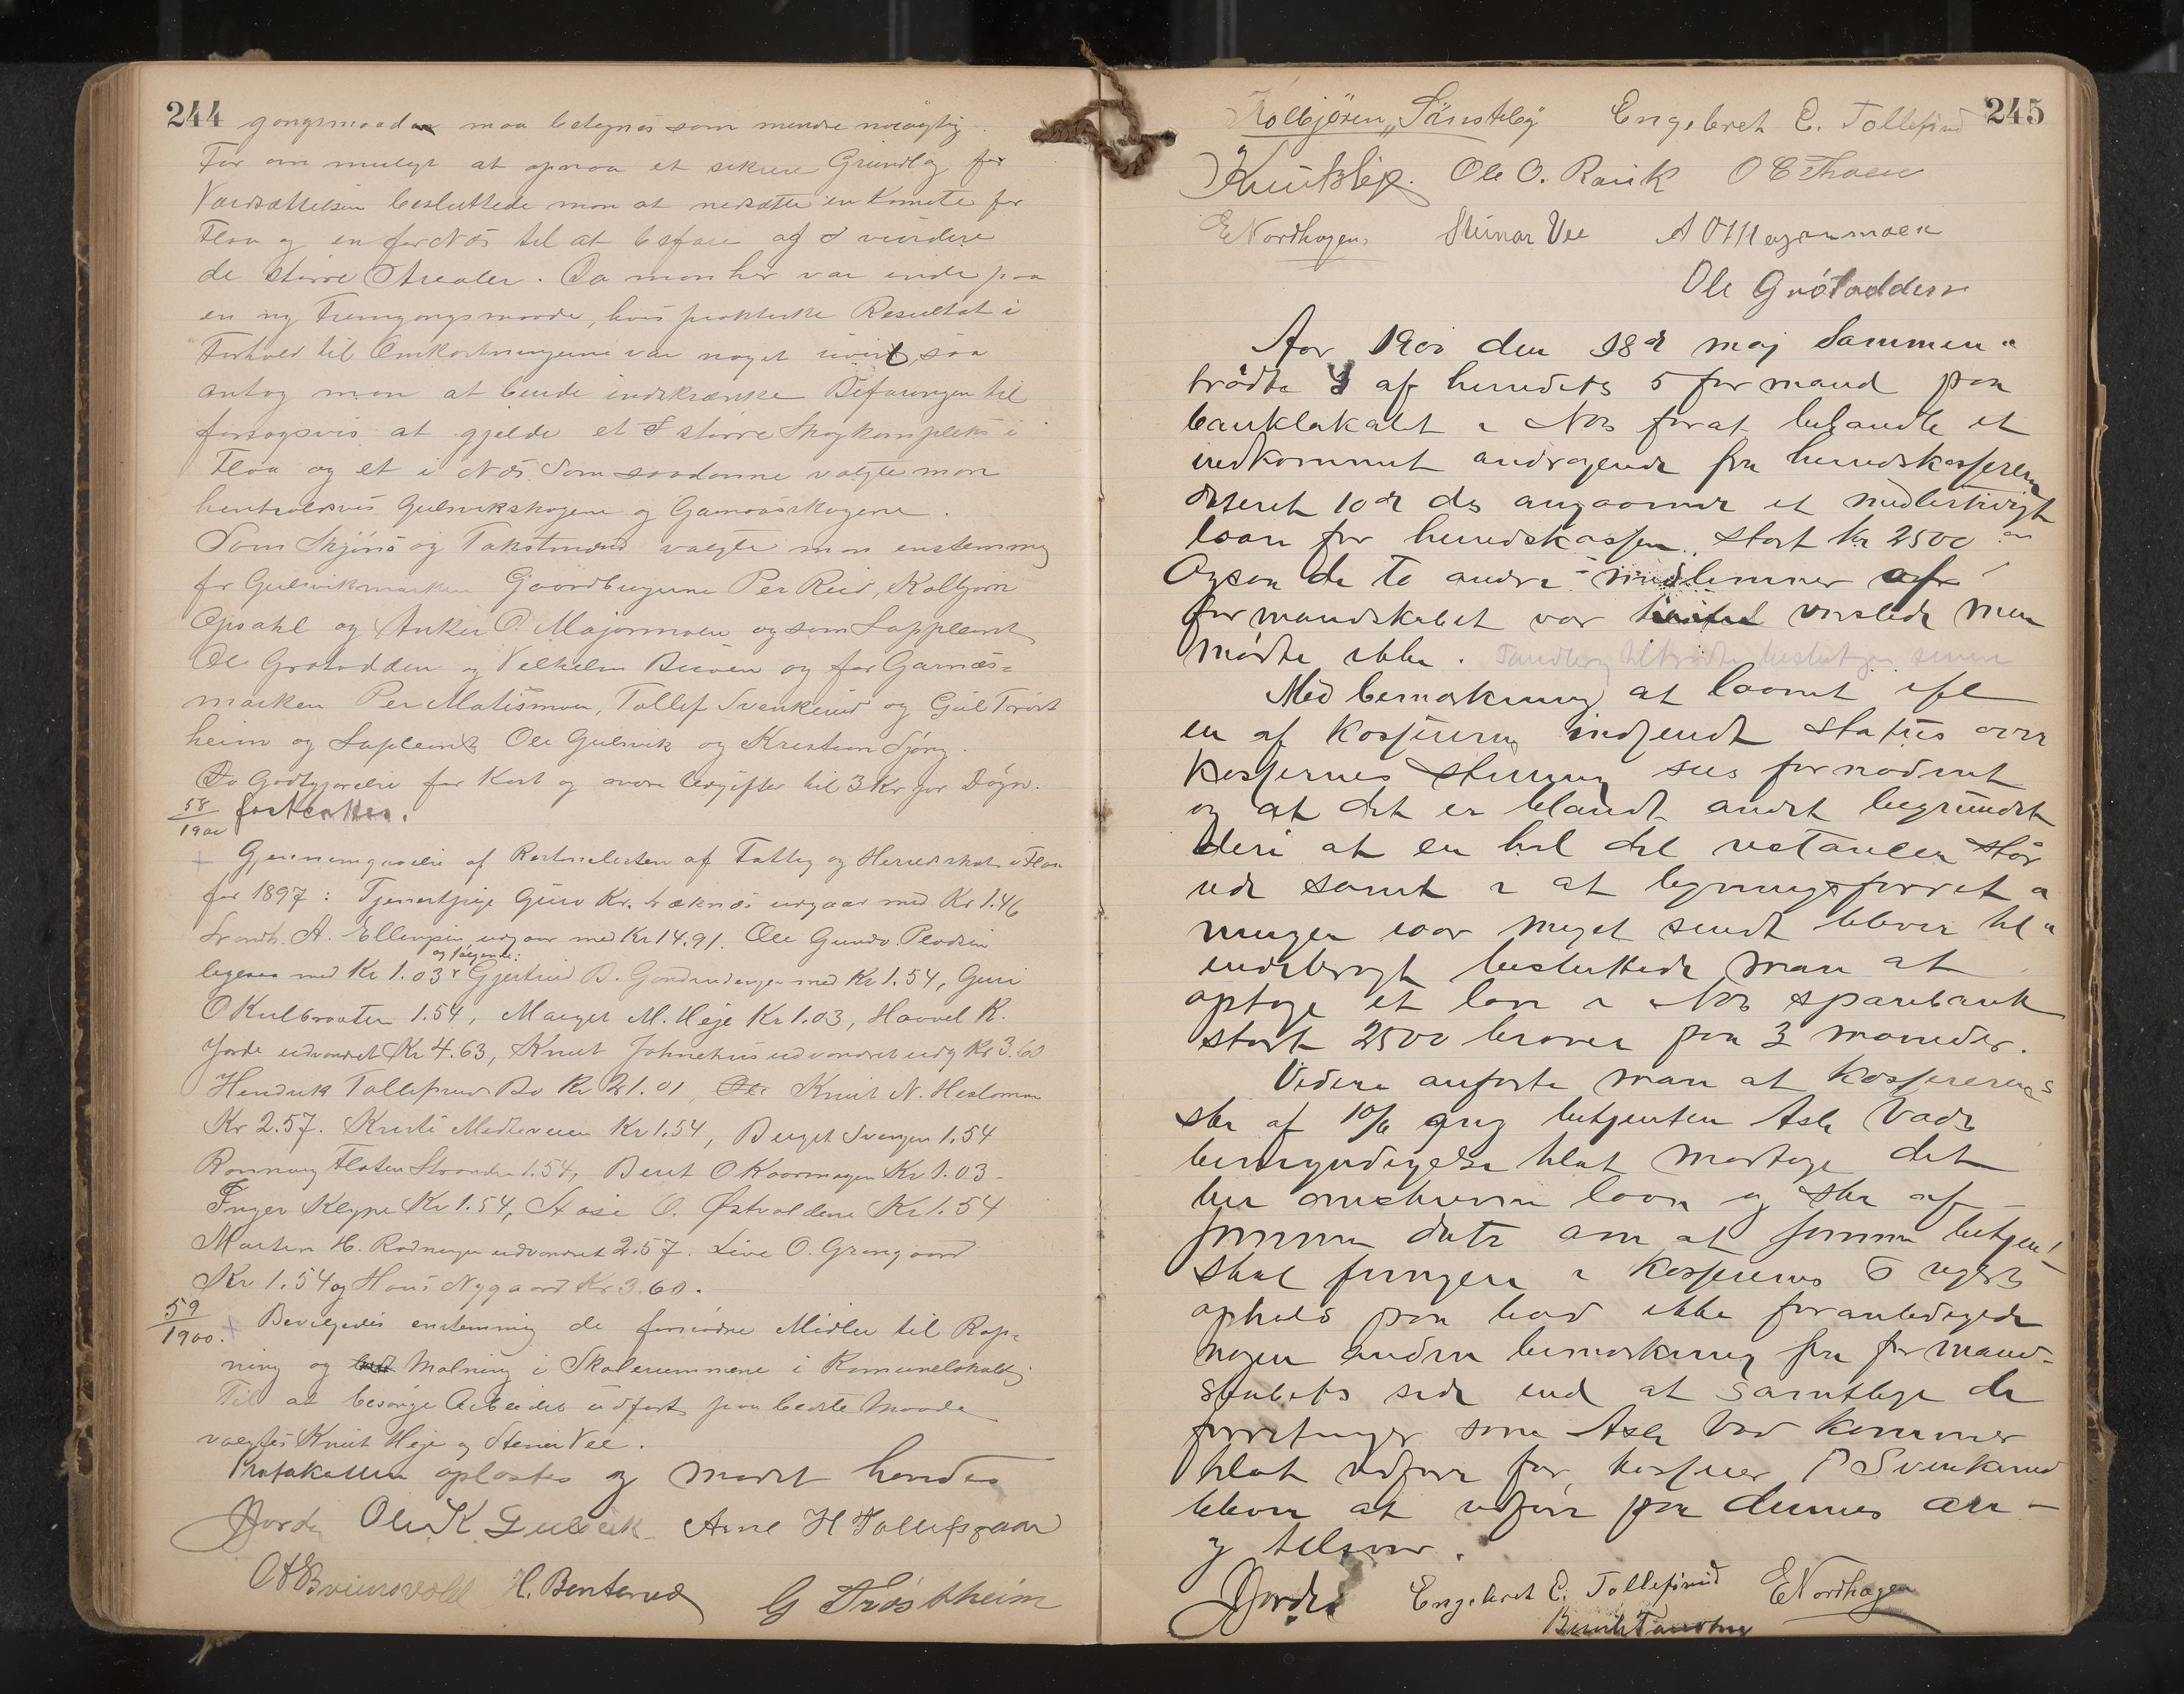 244
gongsmaaden maa betegnes som mindre nøiagtig.
For om muligt at opnaa et sikrere Grundlag for
Værdsættelsen besluttede man at nedsætte en Komite for
Flaa og en for Næs til at befare og vurdere
de større Arealer. Da man her var inde paa
en ny Fremgangsmaade, hvis praktiske Resultat i
Forhold til Omkostningerne var noget uvist, saa
antog man at burde indskrænke Befaringen til
forsøgsvis at gjelde et større Skogkompleks i
Flaa og et i Næs. Som saadanne valgte man
henholdsvis Gulsvikskogene og Garnaasskogene.
Som Skjøns og Takstmænd valgte man enstemmig
for Gulsvikmarken Gaardbrugerne Per Reid, Kolbjørn
Opsahl og Anker O. Majormoen og som Supleant
Ole Grøtodden og Vilhelm Bruen og for Garnæs-
marken Per Matismoen, Tollef Svenkerud og Gul Trøst
heim og Supleant Ole Gulsvik og Kristian Sjong.
Godtgjørelse for Kost og andre Udgifter til 3 Kr pr Døgn.
58/1900 fastsattes.
Gjennemgaaelse af Restancelisten af Fattig og Herredsskat i Flaa
for 1897: Tjenestpige Guro Kr. Bæknæs udgaar med Kr 1.46
A. Ellingsen udgaar med Kr 14.91. Ole Gundv.
og følgende:
ligesaa med Kr 1.03 Gjertrud B. med Kr 1.54, Guri
O Kulbraaten 1.54, Margit M. Heje Kr 1.03, Haavel K.
Jorde udvandret Kr 4.63, Knut udvandret udg Kr 3.60
Hendrik Tollefsrud Bo Kr 21.01, Knut N. Heslomoen
Kr 2.57. Kristi Medleveien Kr 1.54, Berget 1.54
Rønnaug Flaten 1.54, Berit O Kaarmogen Kr 1.03
Inger Kleppe Kr 1.54, Aase O. Østvoldene Kr 1.54
Marten H. Rodningen udvandret 2.57. Live O. Grøngaard
Kr 1.54 og Hans Nygaard Kr 3.60.
59/1900. Bevilgedes enstemmig de fornødne Midler til Rap-
ning og Malning i Skolerummene i Komunelokalet.
Til at besørge Arbeidet udført paa bedste Maade
valgtes Knut Heje og Steinar Vee.
Protokollen oplæstes og mødet hævedes
Jorde Ole K Gulsvik Arne H Tollefsgaard
O Bruunsvold H. Bentsrud G Trøstheim
245
Kolbjøren Sansteby Engebret E. Tollefsrud
Knut Heje. Ole O. Rank O E Thoen
E Nordhagen Steinar Vee A O Majormoen
Ole Grøtodden
Aar 1900 den 18de maj sammen-
traadte 3 af herredets 5 formænd paa
banklokalet i Næs forat behandle et
indkommet andragende fra herredskassereren
dateret 10de ds angaaende et midlertidigt
laan for herredskassen, stort kr 2500
Ogsaa de to andre medlemmer af
formandskabet var varslede men
mødte ikke. Sandberg tiltrædte beslutningen senere
Med bemærkning at laanet ifl
en af kassereren indsendt status over
kassernes stilling sees fornødent
og at det er blandt andet begrundet
deri at en hel del restancer står
ude samt i at ligningsforret-
ningen iaar meget sendt bliver til-
endebragt besluttede man at
optage et laan i Næs sparebank
stort 2500 kroner paa 3 maaneder.
Videre anførte man at kassererens
skr af 10/5 ang betjenten Asle Vads
bemyndigelse til at modtage det
her omskrevne laan og skr af
samme dato om at samme betjent
skal fungere i kassererens
ophold paa bad ikke foranledigede
nogen anden bemærkning fra formand-
skabets side end at samtlige de
forretninger som Asle Vad kommer
til at udføre for kasserer P Svenkerud
bliver at udføre paa dennes an-
og tilsvar.
Jorde Engebret E. Tollefsrud E Nordhagen
Bernh Sandberg